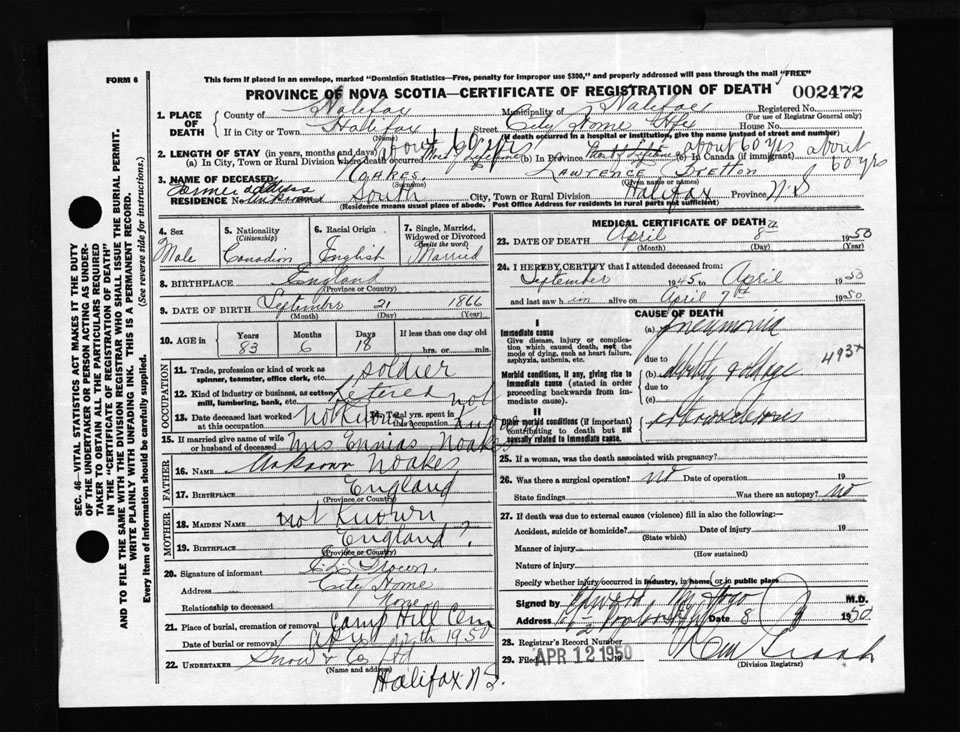 FORM 6
This form if placed in an envelope, marked "Dominion Statistics—Free, penalty for improper use $300," and properly addressed will pass through the mail "FREE"
PROVINCE OF NOVA SCOTIA—CERTIFICATE OF REGISTRATION OF DEATH 002472
1. PLACE OF DEATH
County of Halifax Municipality of Halifax Registered No.
(For use of Registrar General only)
If in City or Town Halifax Street City Home Hfx House No.
(Name) (If death occurred in a hospital or institution, give the name instead of street and number)
2. LENGTH OF STAY (in years, months and days) about 60 yrs about 60 yrs about 60 yrs
(a) In City, Town or Rural Division where death occurred (b) In Province (c) In Canada (if immigrant)
3. NAME OF DECEASED Noakes Lawrence
(Surname) (Given name or names)
RESIDENCE No. Unknown South City, Town or Rural Division Halifax Province N.S
(Residence means usual place of abode. Post Office Address for residents in rural parts not sufficient)
4. Sex Male
5. Nationality (Citizenship) Canadian
6. Racial Origin English
7. Single, Married, Widowed or Divorced (write the word) Married
8. BIRTHPLACE England
(Province or Country)
9. DATE OF BIRTH September 21 1866
(Month) (Day) (Year)
10. AGE in Years 83 Months 6 Days 18 If less than one day old hrs. or min.
OCCUPATION
11. Trade, profession or kind of work as spinner, teamster, office clerk, etc. Soldier
12. Kind of industry or business, as cotton mill, lumbering, bank, etc.
13. Date deceased last worked at this occupation not known
14. Total yrs. spent in this occupation
15. If married give name of wife or husband of deceased Mrs Noakes
FATHER
16. NAME Unknown Noakes
17. BIRTHPLACE England
(Province or Country)
MOTHER
18. MAIDEN NAME not Known
19. BIRTHPLACE England ?
(Province or Country)
20. Signature of informant
Address City Home
Relationship to deceased None
21. Place of burial, cremation or removal Camp Hill Cem
Date of burial or removal April 12th 1950
22. UNDERTAKER Snow & Co Ltd
(Name and address)
Halifax N.S.
MEDICAL CERTIFICATE OF DEATH
23. DATE OF DEATH April 8th 1950
(Month) (Day) (Year)
24. I HEREBY CERTIFY that I attended deceased from:
September 1945 to April 1950
and last saw him alive on April 7th 1950
CAUSE OF DEATH
I
Immediate cause
Give disease, injury or complication which caused death, not the mode of dying, such as heart failure, asphyxia, asthenia, etc.
(a) Pneumonia
due to
493x
Morbid conditions, if any, giving rise to immediate cause (stated in order proceeding backwards from immediate cause).
(b)
due to
(c)
II
Other morbid conditions (if important) contributing to death but not causally related to immediate cause.
25. If a woman, was the death associated with pregnancy?
26. Was there a surgical operation? no Date of operation 19
State findings Was there an autopsy? no
27. If death was due to external causes (violence) fill in also the following:—
Accident, suicide or homicide? Date of injury 19
(State which)
Manner of injury
(How sustained)
Nature of injury
Specify whether injury occurred in industry, in home, or in public place
Signed by M.D.
Address Date 8 1950
28. Registrar's Record Number
29. Filed APR 12 1950
(Division Registrar)
SEC. 46—VITAL STATISTICS ACT MAKES IT THE DUTY
OF THE UNDERTAKER OR PERSON ACTING AS UNDERTAKER TO OBTAIN ALL THE PARTICULARS REQUIRED
IN THE "CERTIFICATE OF REGISTRATION OF DEATH"
AND TO FILE THE SAME WITH THE DIVISION REGISTRAR WHO SHALL ISSUE THE BURIAL PERMIT.
WRITE PLAINLY WITH UNFADING INK. THIS IS A PERMANENT RECORD.
Every item of Information should be carefully supplied. (See reverse side for instructions.)